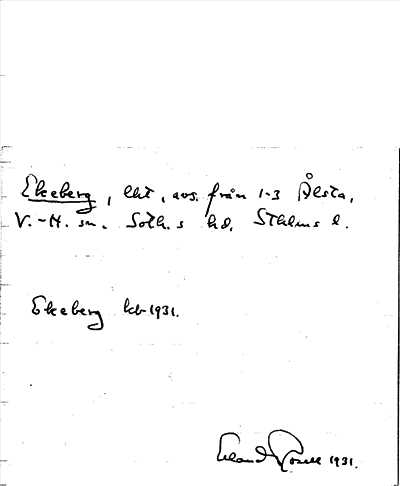 Ekeberg, lht, avs. från 1-3 Ålsta,
V.-H. sn. Soth.s hd, Sthlms l.
Ekeberg kb 1931.
Erland Rosell 1931.